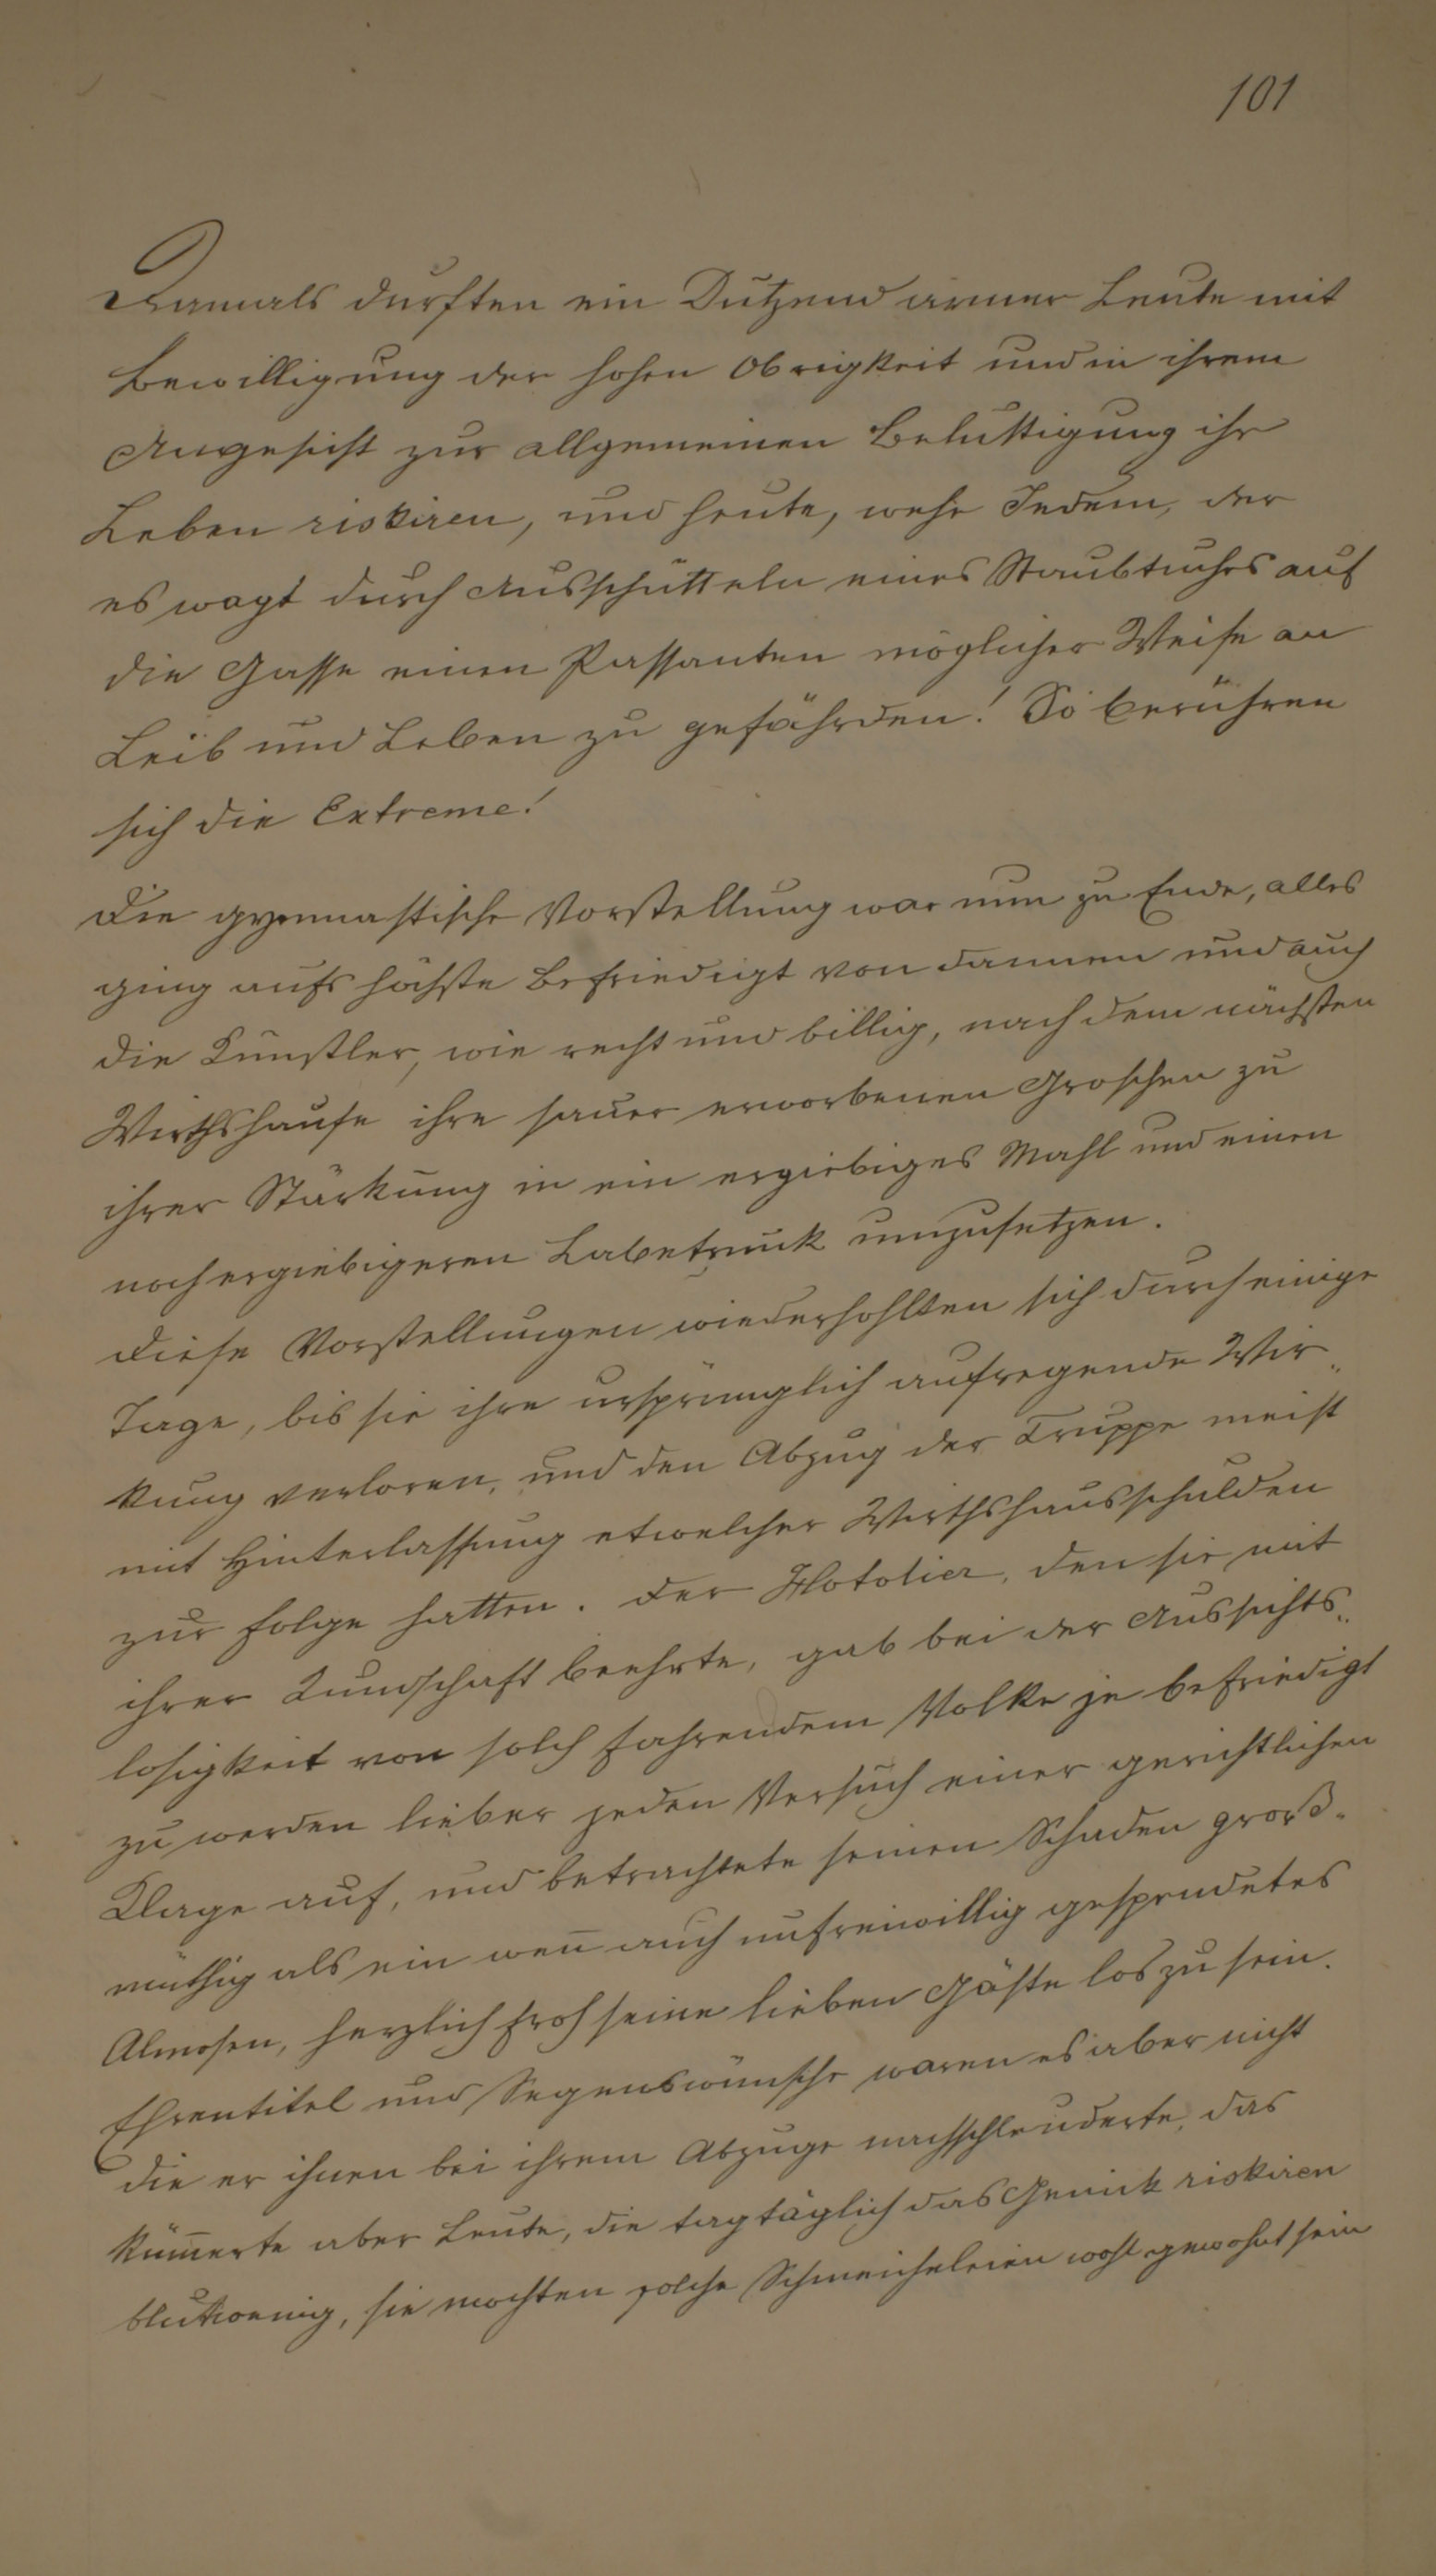 101
Damals durften ein Dutzend armer Leute mit
Bewilligung der hohen Obrigkeit und in ihrem
Angesicht zur allgemeinen Belustigung ihr
Leben riskiren, und heute, wehe Jedem, der
es wagt durch Ausschütteln eines Staubtuches auf
die Gasse einen Passanten möglicher Weise an
Leib und Leben zu gefährden! So berühren
sich die Extreme!
Die gymnastische Vorstellung war nun zu Ende, alles
ging aufs höchste befriedigt von dannen und auch
die Künstler, wie recht und billig, nach dem nächsten
Wirthshause ihre sauer erworbenen Groschen zu
ihrer Stärkung in ein ergiebiges Mahl und einen
noch ergiebigeren Labetrunk umzusetzen.
Diese Vorstellungen wiederhohlten sich durch einige
Tage, bis sie ihre ursprünglich aufregende Wir„
kung verloren, und den Abzug der Truppe meist
mit Hinterlassung etwelcher Wirthshausschulden
zur Folge hatten. Der Hotolier, den sie mit
ihrer Kundschaft beehrte, gab bei der Aussichts„
losigkeit von solch fahrendem Volke je befriedigt
zu werden lieber jeden Versuch einer gerichtlichen
Klage auf, und betrachtete seinen Schaden groß„
müthig als ein wen̄ auch unfreiwillig gespendetes
Almosen, herzlich froh seine lieben Gäste los zu sein.
Ehrentitel und Segenswünsche waren es aber nicht
die er ihnen bei ihrem Abzuge nachschleuderte, das
küm̄erte aber Leute, die tagtäglich das Genick riskiren
blutwenig, sie mochten solche Schmeicheleien wohl gewohnt sein